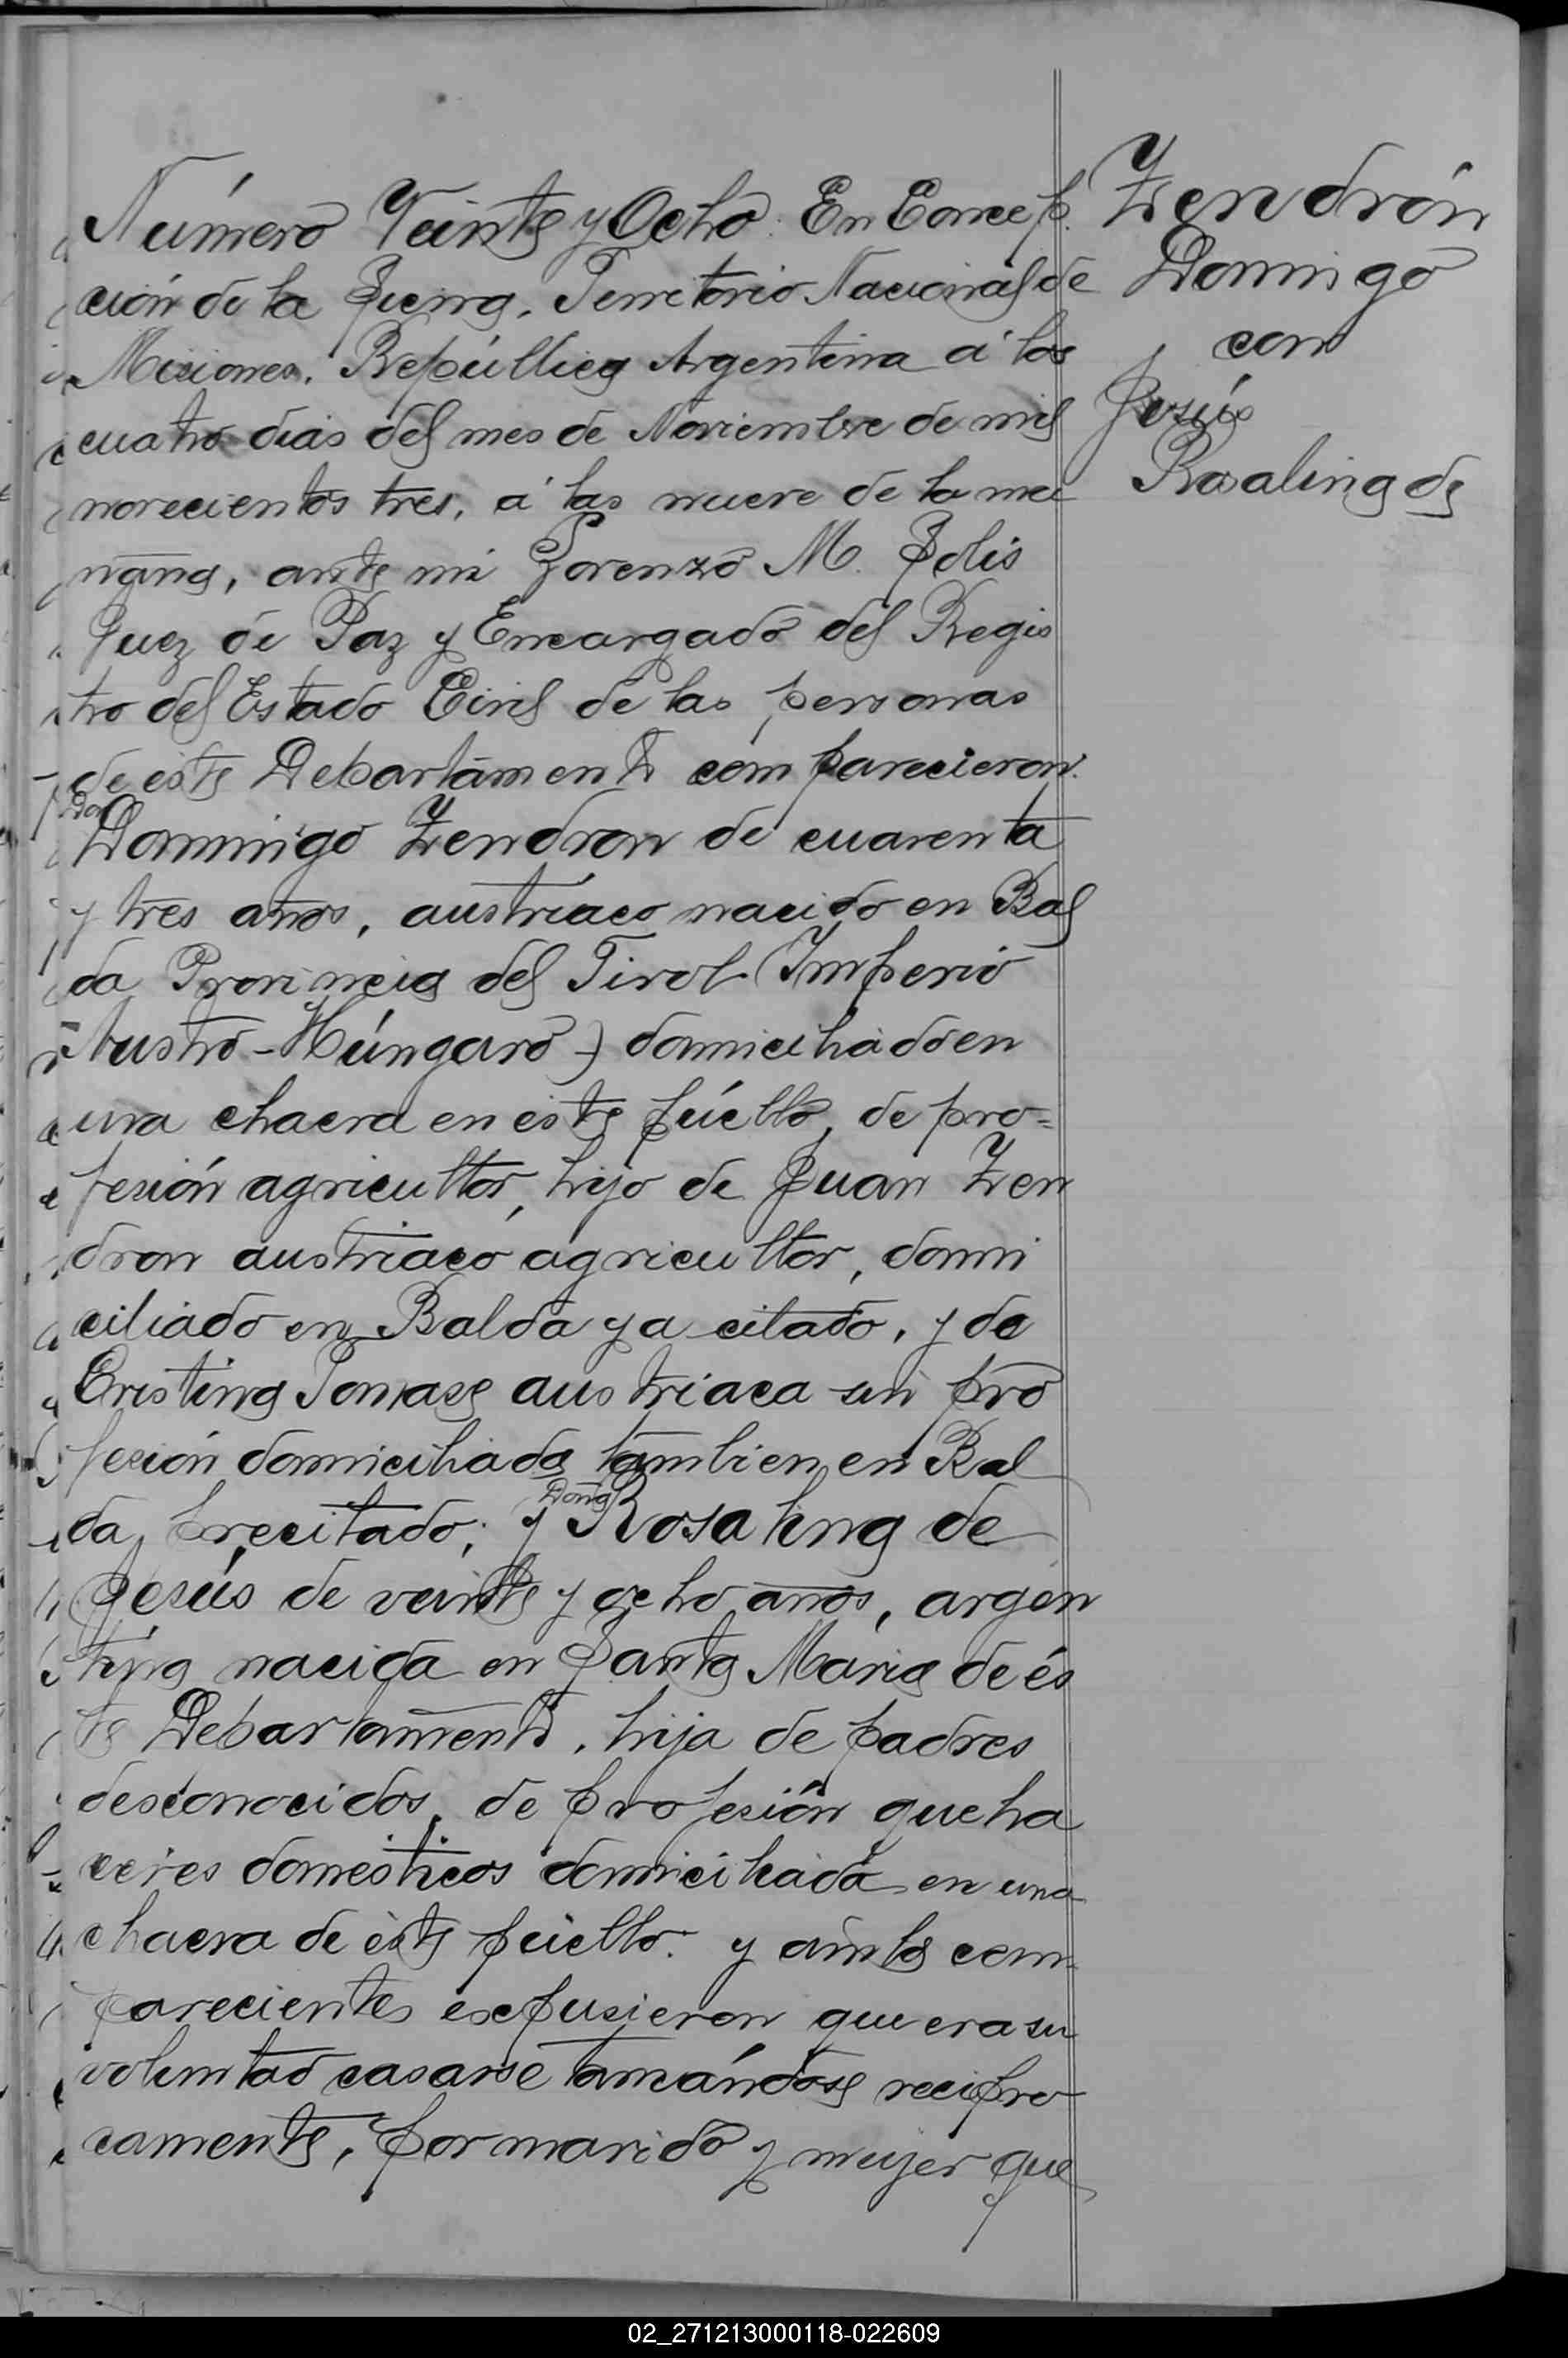 Número Veinte y Ocho. En Concep.
ción de la Sierra, Territorio Nacional de
Misiones, República Argentina á los
cuatro dias del mes de Noviembre de mil
novecientos tres, á las nueve de la ma
ñana, ante mi Lorenzo M. Solis
Juez de Paz y Encargado del Regis
tro del Estado Civil de las personas
de este Departamento comparecieron.
Don
Domingo Zendron de cuarenta
y tres años, austriaco nacido en Bal
da Provincia del Tirol (Imperio
Austro-Húngaro) domiciliado en
una chacra en este púeblo, de pro=
fesión agricultor, hijo de Juan Zen
dron austriaco agricultor, domi
ciliado en Balda ya citado, y de
Cristina Tomase austriaca sin pro
fesión domiciliada tambien en Bal
da, precitado; y Doña Rosalina de
Jesús de veinte y ocho años, argen
tina nacida en Santa Maria de és
te Departamento, hija de padres
desconocidos, de profesión queha
ceres domésticos domiciliada en una
chacra de éste púeblo. y ambos com
parecientes expusieron que era su
voluntad casarse tomándose recipro
camente, por marido y mujer que
Zendrón
Domingo
con
Jesús
Rosalina de
02_271213000118-022609